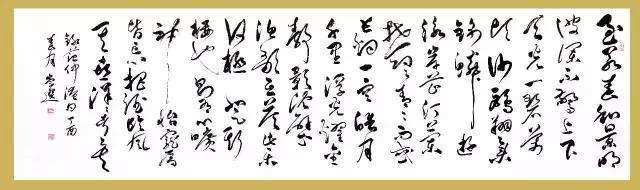 至若春和景明
波澜不惊上下
天光一碧万
顷沙鸥翔集
锦鳞游
泳岸芷汀兰
郁郁青青而或
长烟一空皓月
千里浮光耀金
静影沉璧
渔歌互答此乐
何极登斯
楼也则有心旷
神怡宠辱
皆忘把酒临风
其喜洋洋者矣
录范仲淹句丁酉
春月